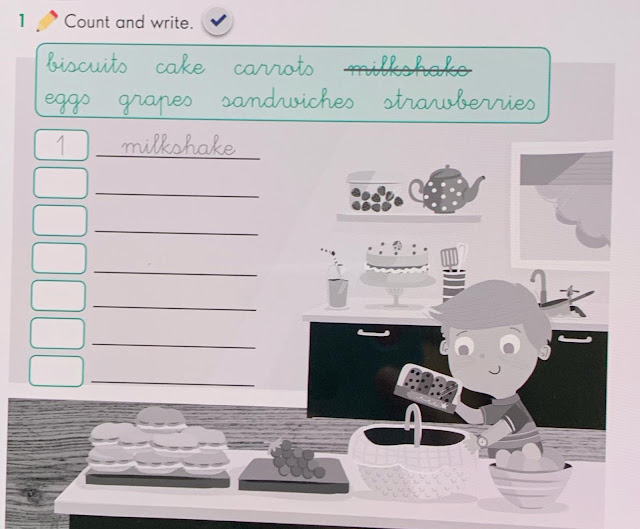 1 Count and write.
biscuits cake carrots milkshake
eggs grapes sandwiches strawberries
1 milkshake